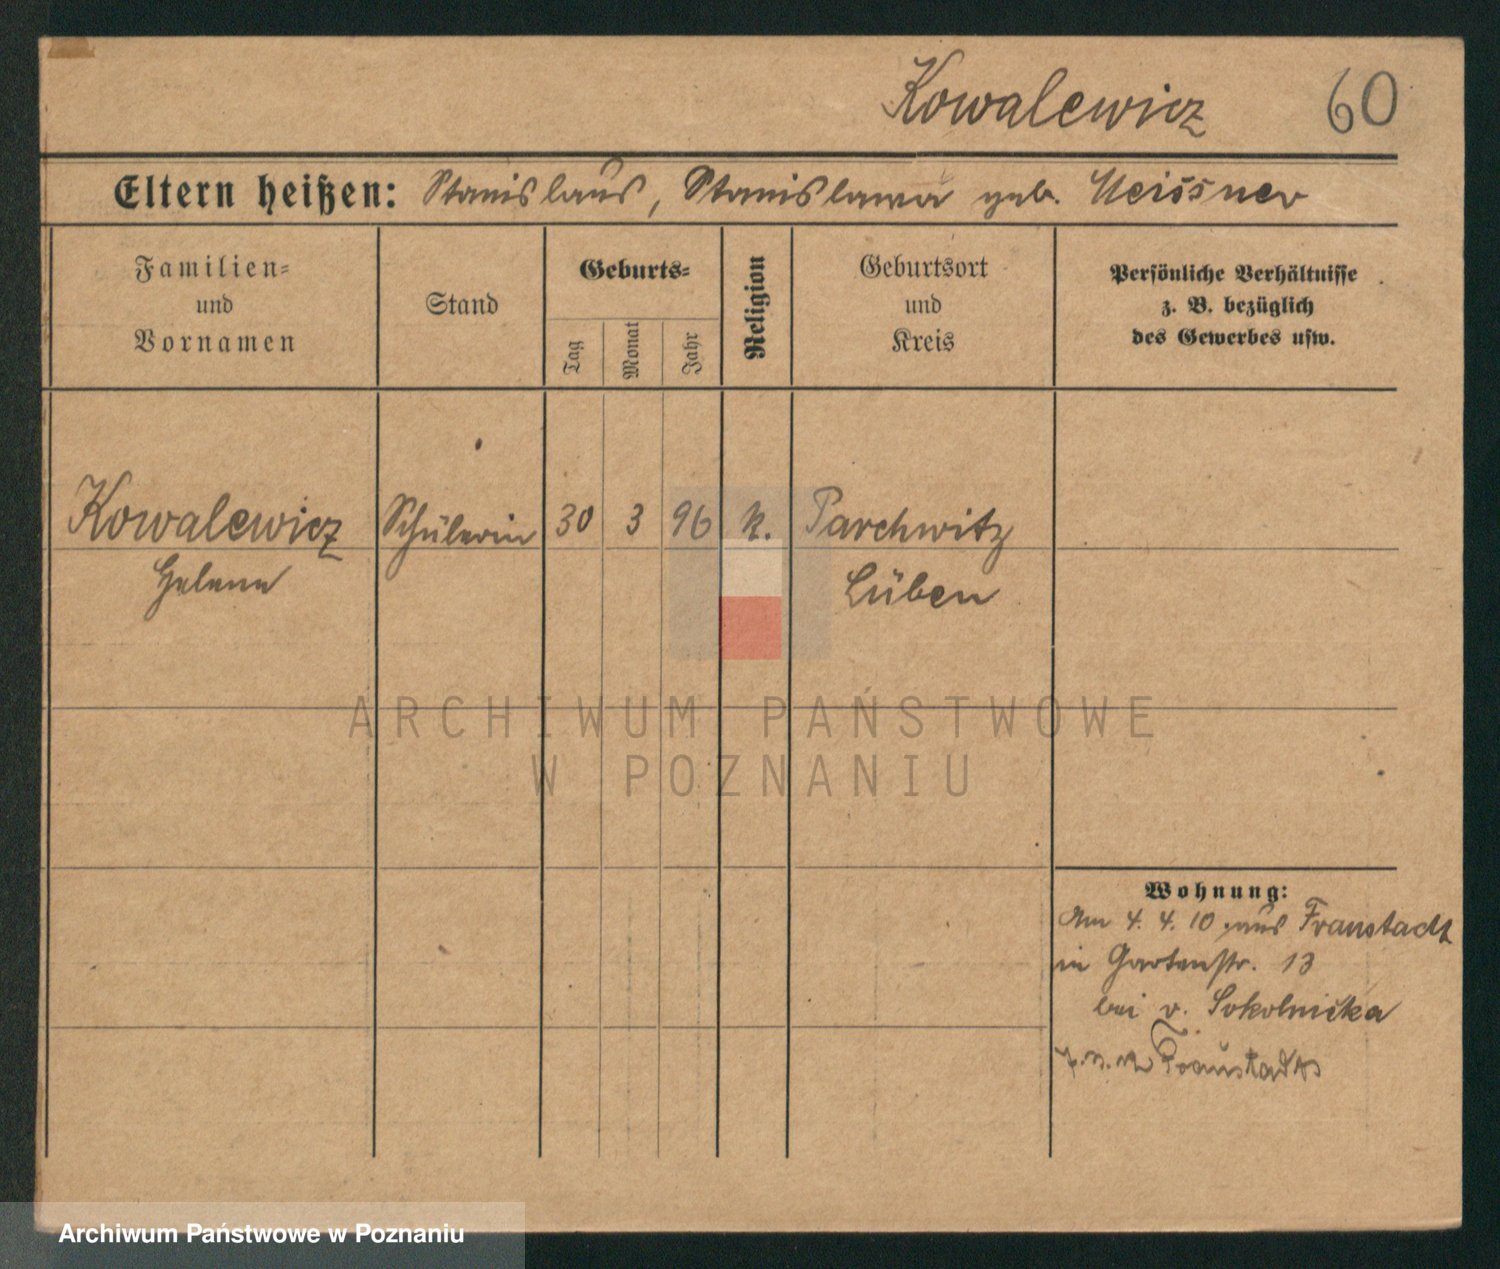 Kowalewicz 60
Eltern heißen: Stanislaus, Stanislawa geb. Meissner
Familien=
und
Vornamen
Stand
Geburts=
Tag
Monat
Jahr
Religion
Geburtsort
und
Kreis
Persönliche Verhältnisse
z. B. bezüglich
des Gewerbes usw.
Kowalewicz Schülerin 30 3 96 k. Parchwitz
Helene Lüben
ARCHIWUM PAŃSTWOWE
W POZNANIU
Wohnung:
Am 4. 4. 10 aus Fraustadt
in Gartenstr. 13
bei v. Sokolnicka
Fraustadt
Archiwum Państwowe w Poznaniu